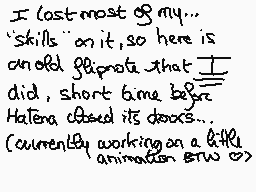 I lost most of my...
"skills" on it, so here is
an old flipnote that I
did, short time before
Hatena closed its doors...
(currently working on a little
animation BTW <3>